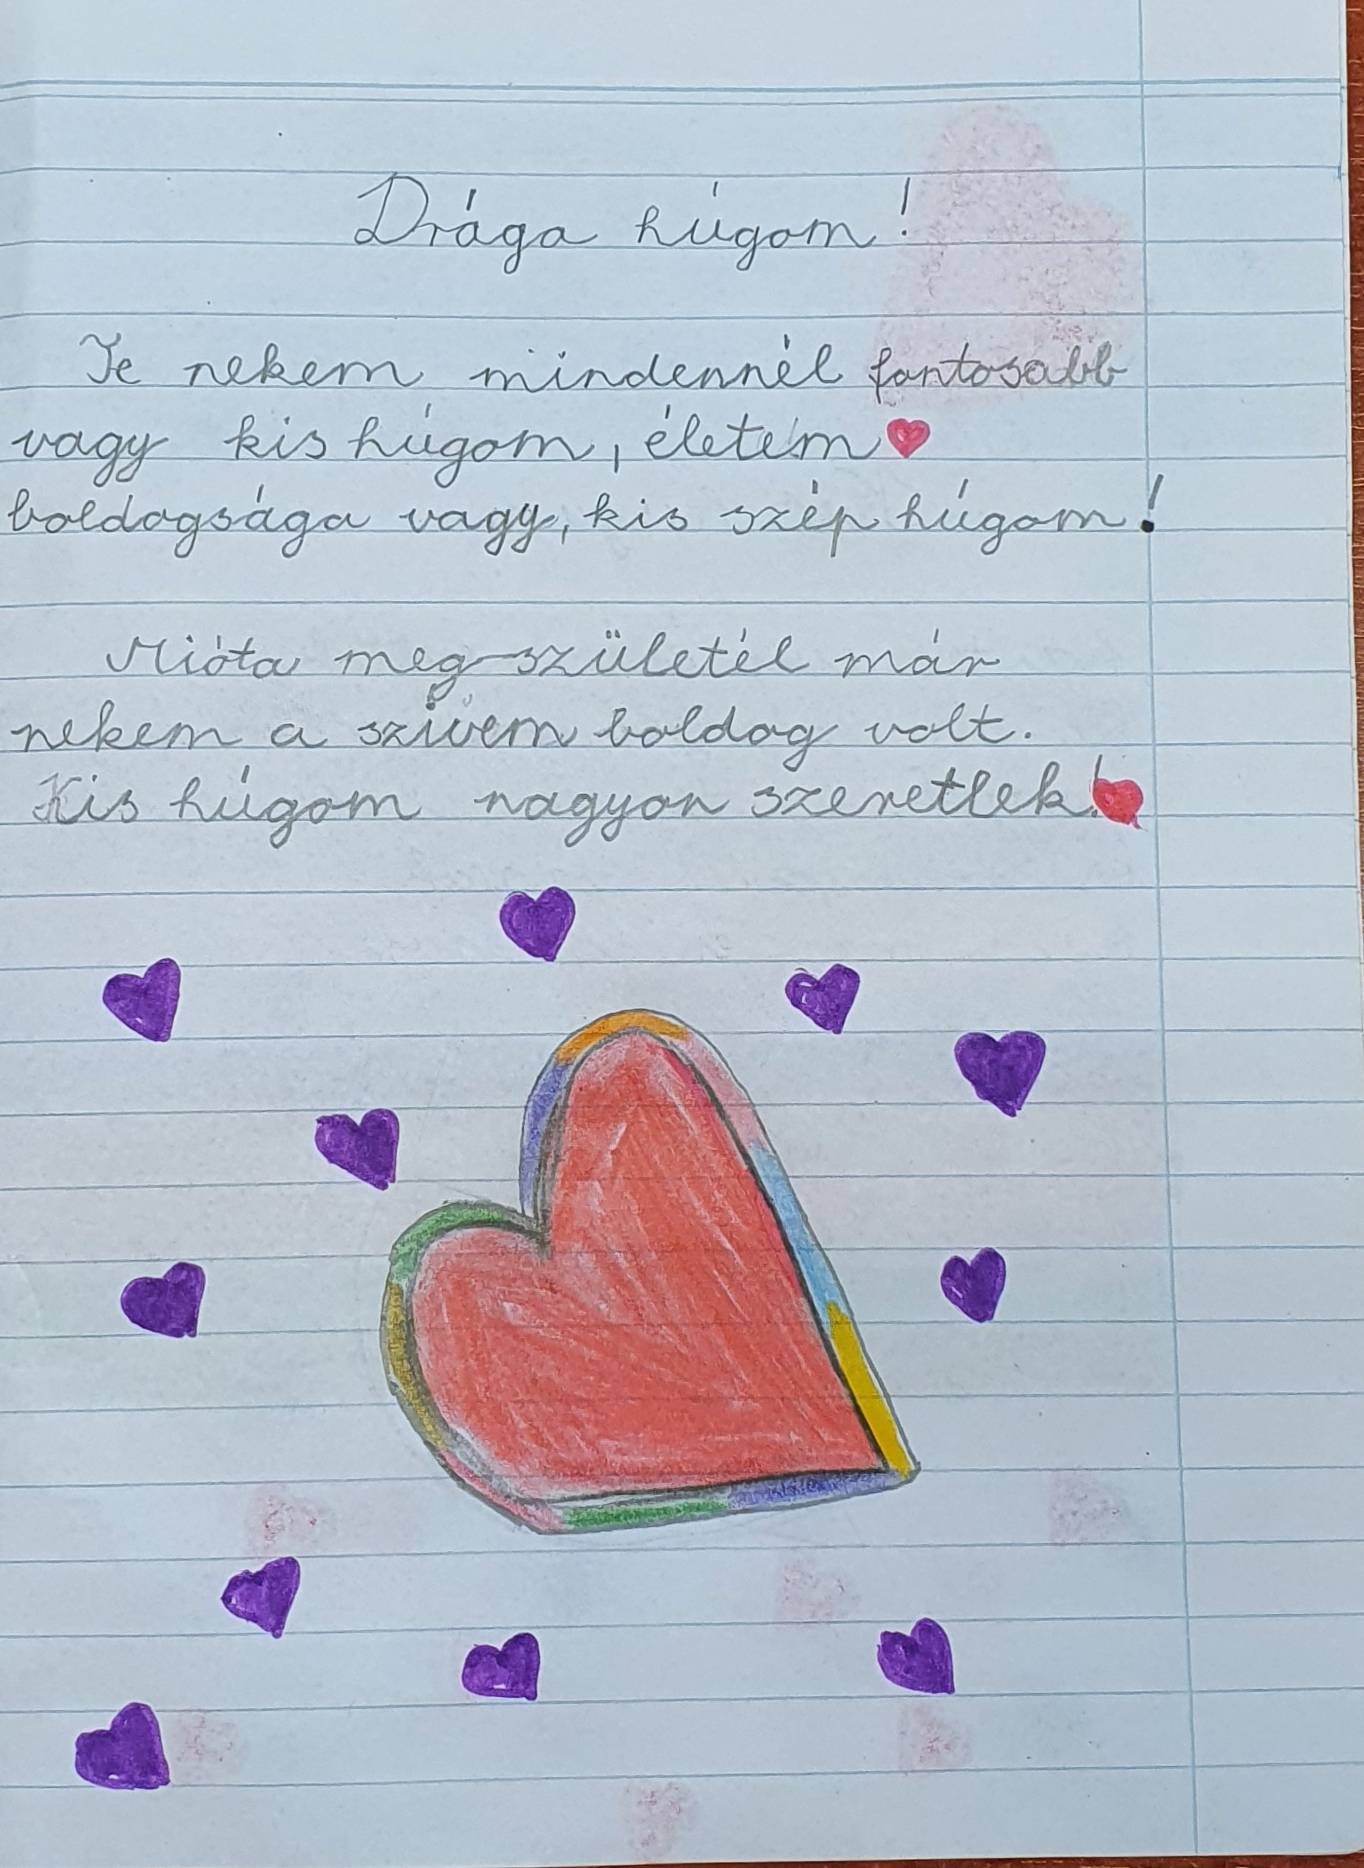 Drága húgom!
Te nekem mindennél fontosabb
vagy kis húgom, életem
boldogsága vagy, kis szép húgom!
Mióta meg születél már
nekem a szívem boldog volt.
Kis húgom nagyon szeretlek!